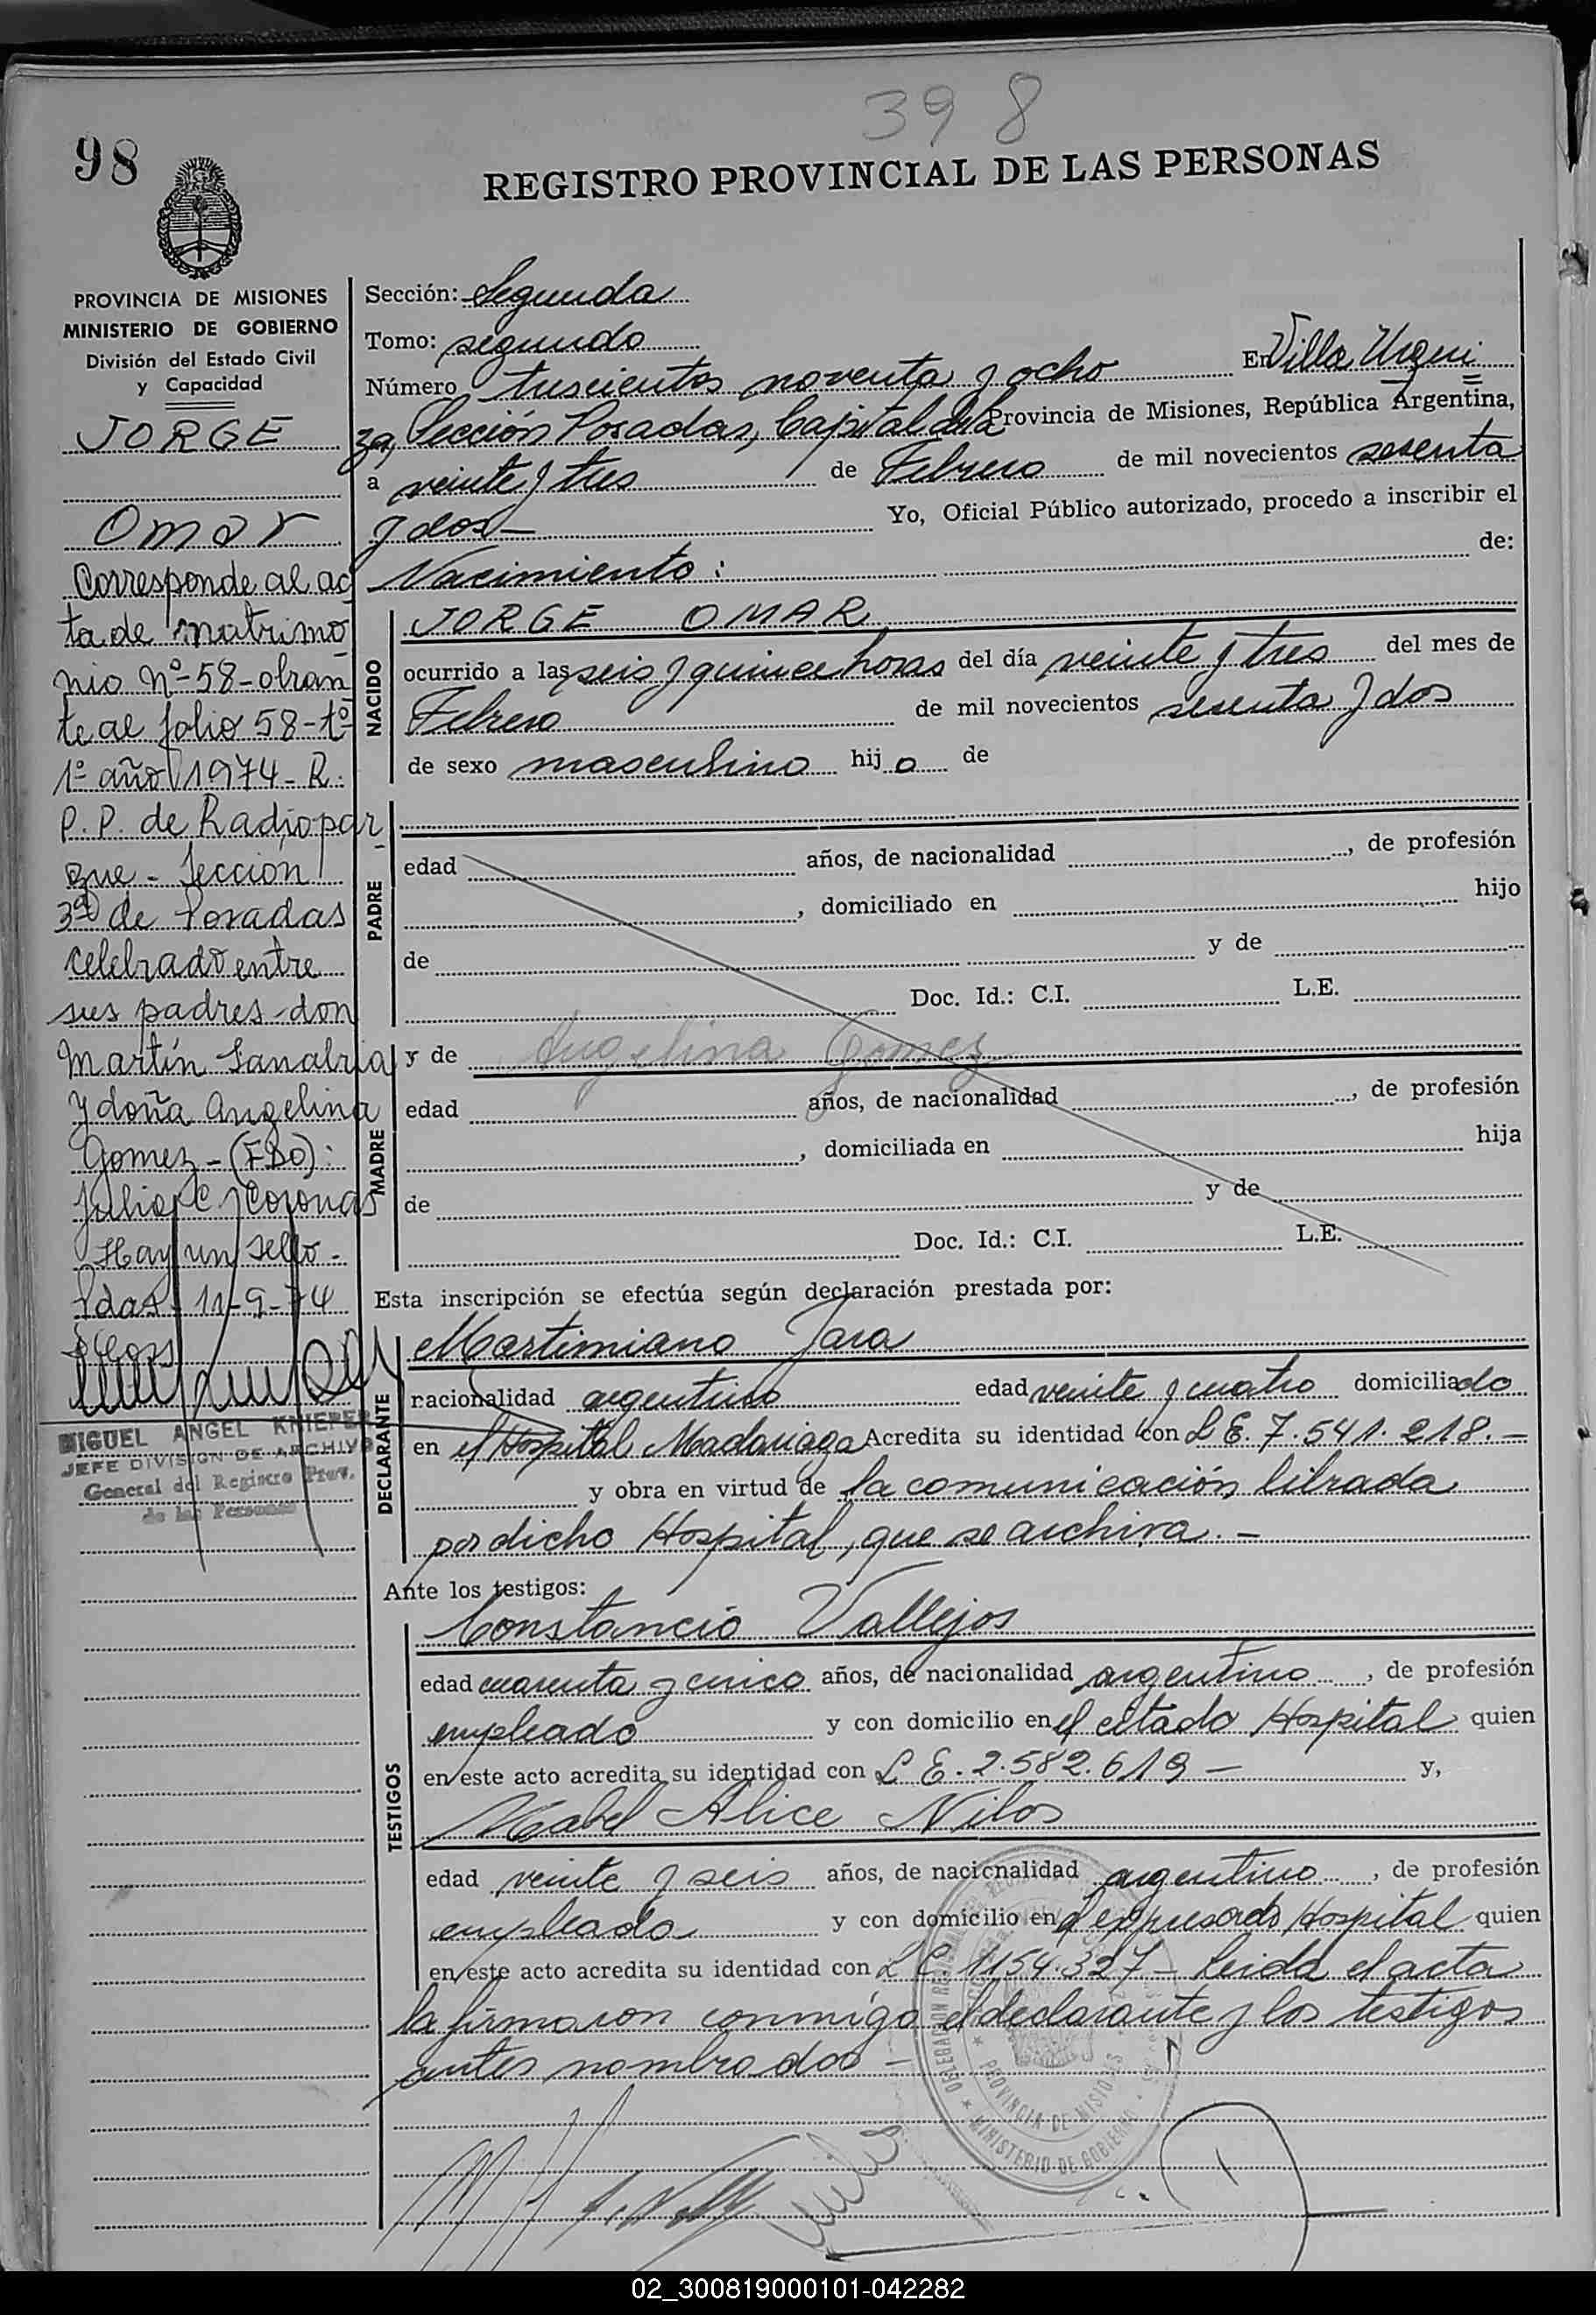 39 8
98
REGISTRO PROVINCIAL DE LAS PERSONAS
PROVINCIA DE MISIONES
MINISTERIO DE GOBIERNO
División del Estado Civil
y Capacidad
JORGE
Omar
Corresponde al ac
ta de matrimo
nio Nº 58 - obran
te al folio 58 - tº
1º año 1974 - R.
P. P. de Radio par
que - Sección
3ª de Posadas
celebrado entre
sus padres don
Martín Sanabria
y doña Angelina
Gomez - (FDO):
Julio C. Coronas
Hay un sello -
Pdas. 11-9-74
MIGUEL ANGEL KNIEPER
JEFE DIVISION DE ARCHIVO
General del Registro Prov.
de las Personas
Sección: Segunda
Tomo: segundo
Número trescientos noventa y ocho En Villa Urqui
za, Sección Posadas, Capital de la Provincia de Misiones, República Argentina,
a veinte y tres de Febrero de mil novecientos sesenta
y dos - Yo, Oficial Público autorizado, procedo a inscribir el
Nacimiento : de:
NACIDO
JORGE OMAR
ocurrido a las seis y quince horas del día veinte y tres del mes de
Febrero de mil novecientos sesenta y dos
de sexo masculino hijo de
PADRE
edad años, de nacionalidad , de profesión
, domiciliado en hijo
de y de
Doc. Id.: C.I. L.E.
MADRE
y de Angelina Gomez
edad años, de nacionalidad , de profesión
, domiciliada en hija
de y de
Doc. Id.: C.I. L.E.
Esta inscripción se efectúa según declaración prestada por:
DECLARANTE
Martimiano Jara
racionalidad argentino edad veinte y cuatro domiciliado
en el Hospital Madariaga Acredita su identidad con L E. 7.541.218. -
y obra en virtud de la comunicación librada
por dicho Hospital, que se archiva. -
Ante los testigos:
TESTIGOS
Constancio Vallejos
edad cuarenta y cinco años, de nacionalidad argentino , de profesión
empleado y con domicilio en el citado Hospital quien
en este acto acredita su identidad con L E. 2.582.619 - y,
Mabel Alice Nilos
edad veinte y seis años, de nacionalidad argentino , de profesión
empleada y con domicilio en el expresado Hospital quien
en este acto acredita su identidad con L C. 1154.327 - Leida el acta
la firmaron conmigo el declarante y los testigos
antes nombrados -
PROVINCIA DE MISIONES
MINISTERIO DE GOBIERNO
02_300819000101-042282